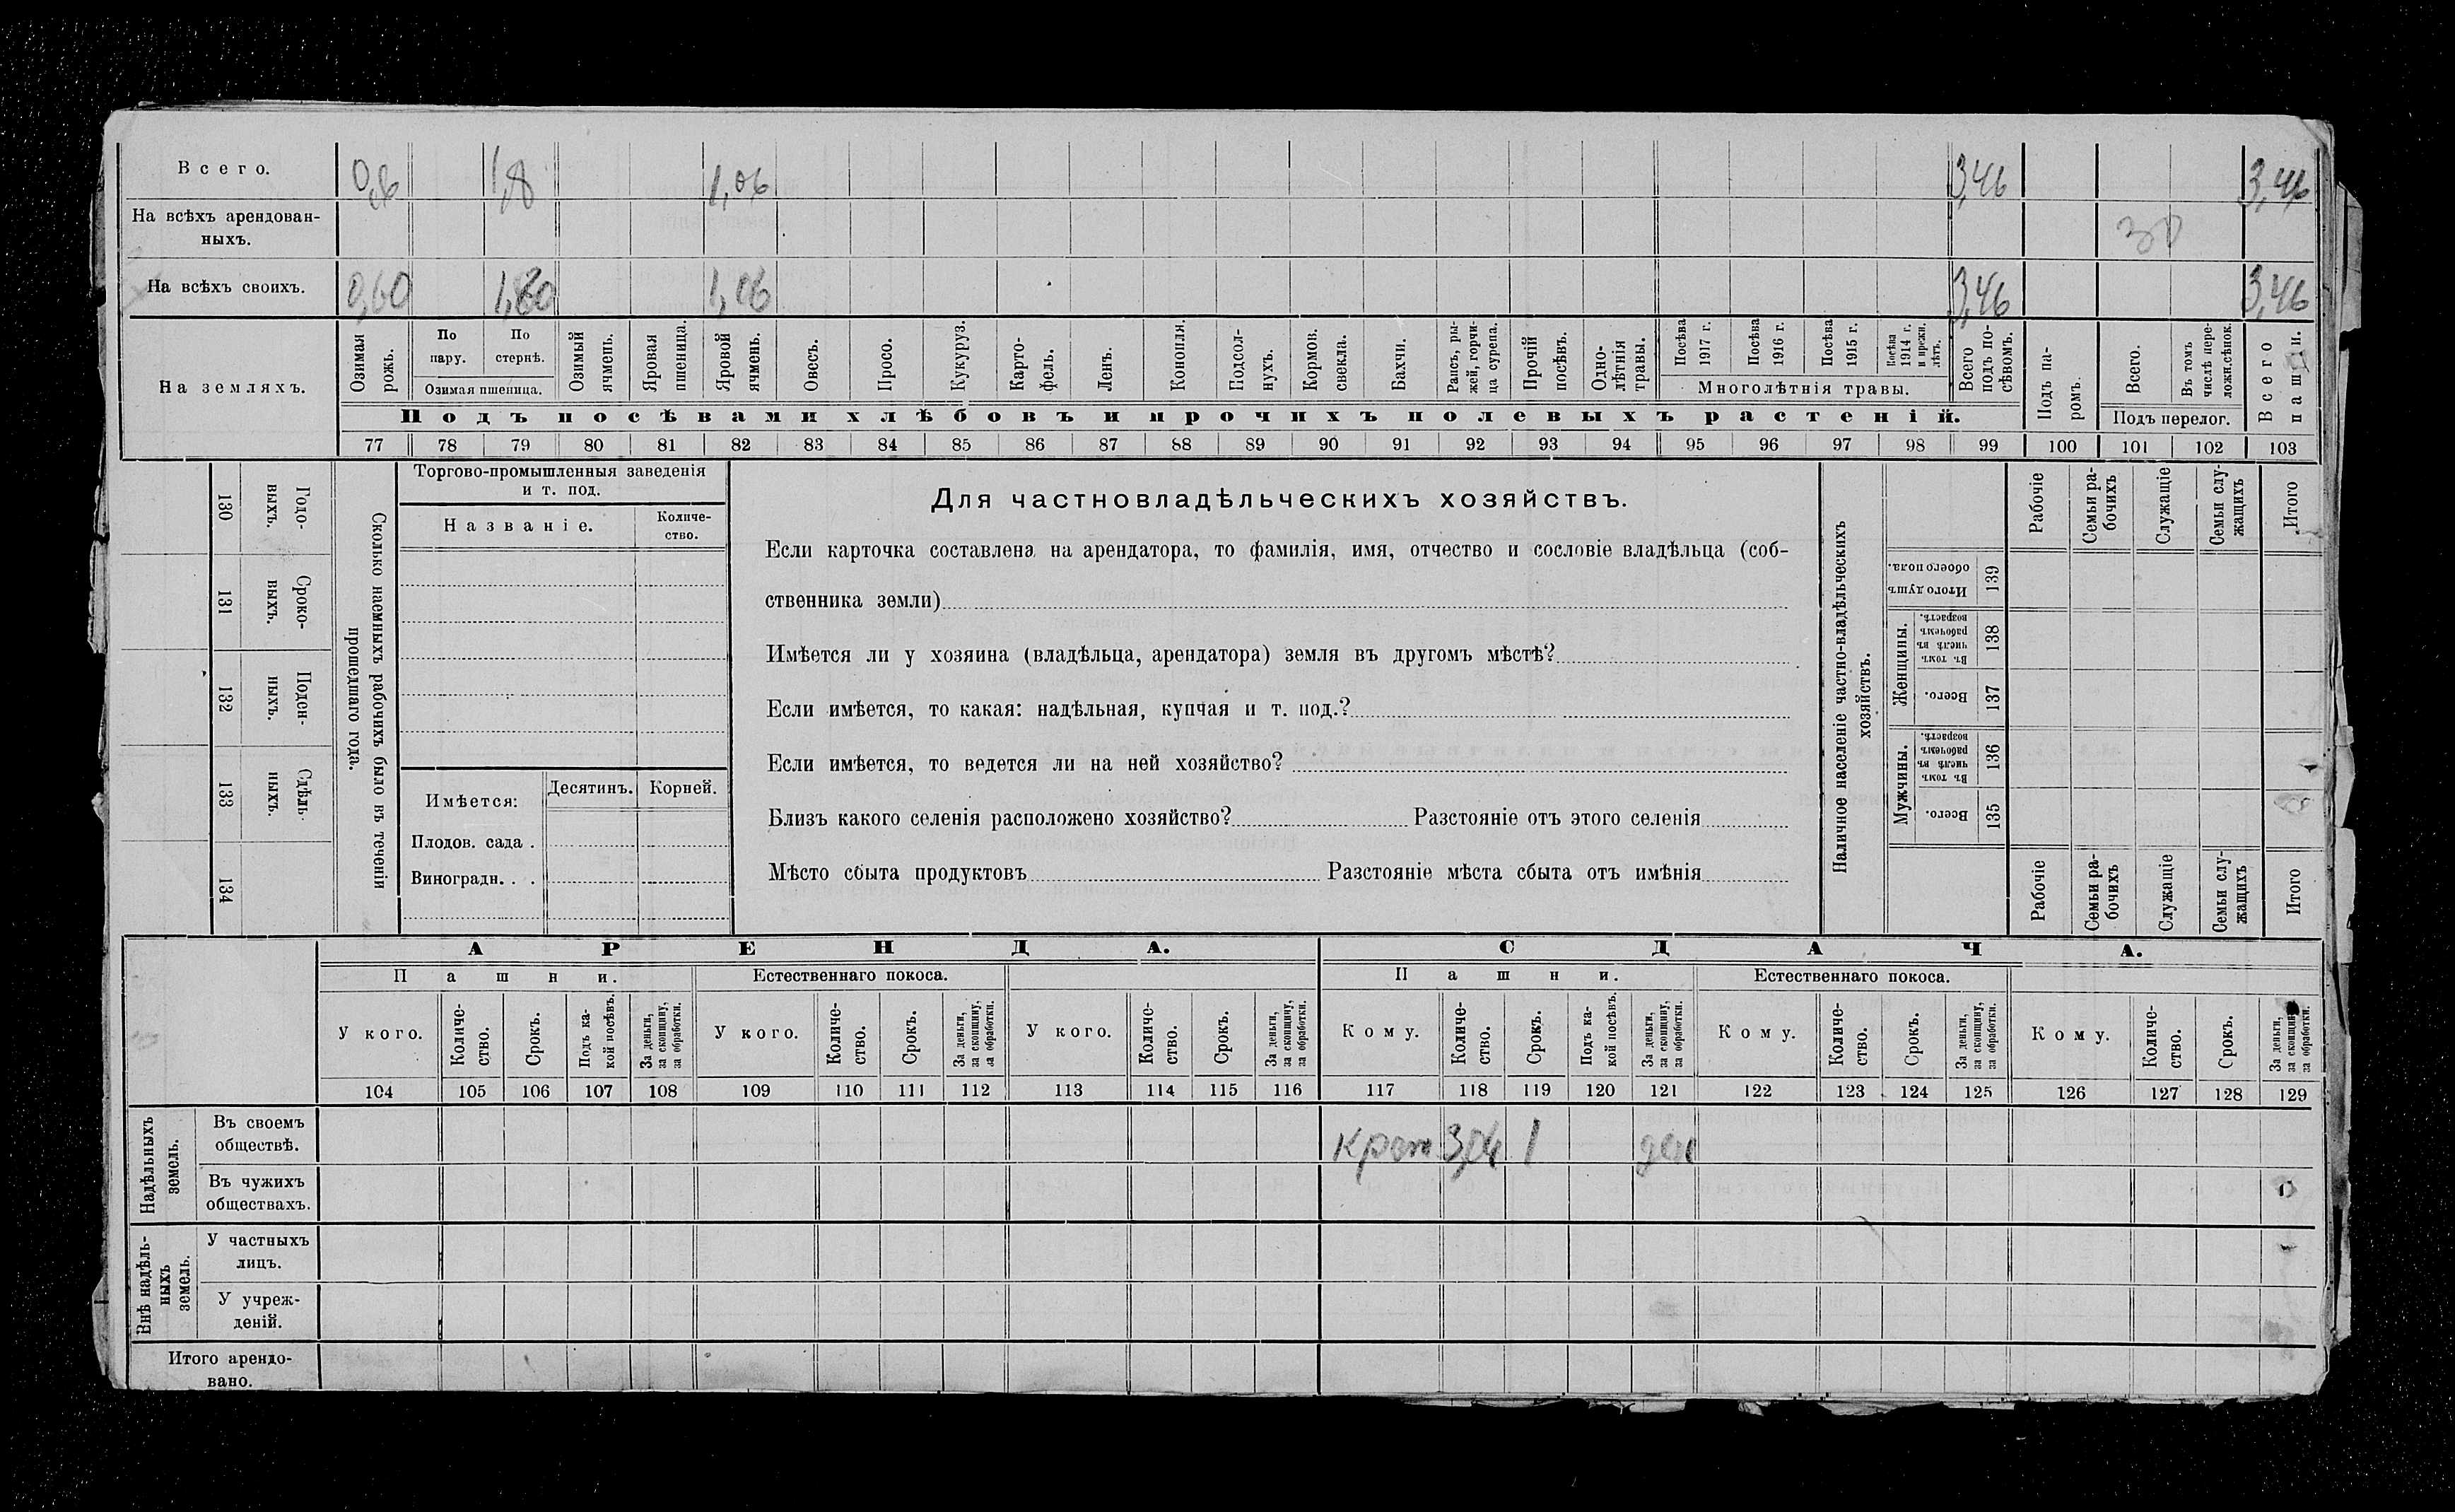 Всего. 0,6 1,8 1,06 3,46 3,46
На всѣхъ арендован-
ныхъ. 30
На всѣхъ своихъ. 0,60 1,80 1,06 3,46 3,46
На земляхъ.
Озимая рожь.
По пару.
По стернѣ.
Озимая пшеница.
Озимый ячмень.
Яровая пшеница.
Яровой ячмень.
Овесъ.
Просо.
Кукуруз.
Карто-
фель.
Ленъ.
Конопля.
Подсол-
нухъ.
Кормов.
свекла.
Бахчи.
Рапсъ, ры-
жей, горчи-
ца сурепа.
Прочій
посѣвъ.
Одно-
лѣтнія
травы.
Посѣва
1917 г.
Посѣва
1916 г.
Посѣва
1915 г.
Посѣва
1914 г.
и прежн.
лѣтъ.
Многолѣтнія травы.
Всего
подъ по-
сѣвомъ.
Подъ па-
ромъ.
Всего.
Въ томъ
числѣ пере-
ложн.сѣнок.
Подъ перелог.
Всего
пашни.
Подъ посѣвами хлѣбовъ и прочихъ полевыхъ растеній.
77 78 79 80 81 82 83 84 85 86 87 88 89 90 91 92 93 94 95 96 97 98 99 100 101 102 103
Сколько наемныхъ рабочихъ было въ теченіи
прошедшаго года.
Годо-
выхъ.
130
Сроко-
выхъ.
131
Поден-
ныхъ.
132
Сдѣль-
ныхъ.
133
134
Торгово-промышленныя заведенія
и т. под.
Названіе.
Количе-
ство.
Имѣется:
Десятинъ.
Корней.
Плодов. сада .
Виноградн. . .
Для частновладѣльческихъ хозяйствъ.
Если карточка составлена на арендатора, то фамилія, имя, отчество и сословіе владѣльца (соб-
ственника земли)
Имѣется ли у хозяина (владѣльца, арендатора) земля въ другомъ мѣстѣ?
Если имѣется, то какая: надѣльная, купчая и т. под.?
Если имѣется, то ведется ли на ней хозяйство?
Близъ какого селенія расположено хозяйство? Разстояніе отъ этого селенія
Мѣсто сбыта продуктовъ Разстояніе мѣста сбыта отъ имѣнія
Наличное населеніе частно-владѣльческихъ
хозяйствъ.
Рабочіе
Семьи ра-
бочихъ
Служащіе
Семьи слу-
жащихъ
Итого
Итого душъ
обоего пола.
139
Женщины.
Въ томъ
числѣ въ
рабочемъ
возрастѣ.
138
Всего.
137
Мужчины.
Въ томъ
числѣ въ
рабочемъ
возрастѣ.
136
Всего.
135
Рабочіе
Семьи ра-
бочихъ
Служащіе
Семьи слу-
жащихъ
Итого
АРЕНДА. СДАЧА.
Пашни. Естественнаго покоса. Пашни. Естественнаго покоса.
У кого.
Количе-
ство.
Срокъ.
Подъ ка-
кой посѣвъ.
За деньги,
за скопщину,
за обработки.
У кого.
Количе-
ство.
Срокъ.
За деньги,
за скопщину,
за обработки.
У кого.
Количе-
ство.
Срокъ.
За деньги,
за скопщину,
за обработки.
Кому.
Количе-
ство.
Срокъ.
Подъ ка-
кой посѣвъ.
За деньги,
за скопщину,
за обработки.
Кому.
Количе-
ство.
Срокъ.
За деньги,
за скопщину,
за обработки.
Кому.
Количе-
ство.
Срокъ.
За деньги,
за скопщину,
за обработки.
104 105 106 107 108 109 110 111 112 113 114 115 116 117 118 119 120 121 122 123 124 125 126 127 128 129
Надѣльныхъ
земель.
Въ своемъ
обществѣ. 1 ден
Въ чужихъ
обществахъ.
Внѣ надѣль-
ныхъ
земель.
У частныхъ
лицъ.
У учреж-
деній.
Итого арендо-
вано.